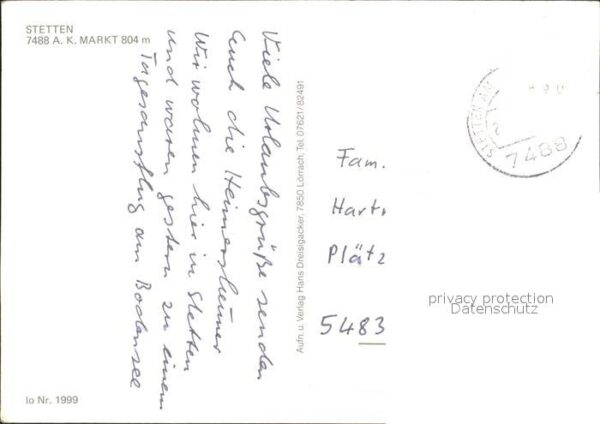 STETTEN
7488 A. K. MARKT 804 m
Viele Urlaubsgrüße senden
Euch die Heimersheimer
Wir wohnen hier in Stetten
und waren gestern zu einem
Tagesausflug am Bodensee
Aufn. u. Verlag Hans Dreisigacker, 7850 Lörrach, Tel. 07621/82491
7488
Fam.
Hart
Plätz
5483
privacy protection
Datenschutz
lo Nr. 1999